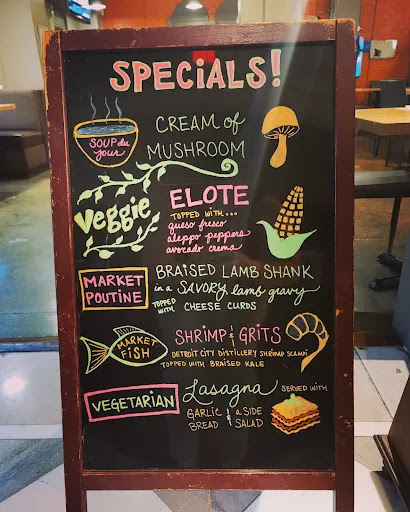 SPECiALS!
SOUP du jour
CREAM of
MUSHROOM
Veggie
ELOTE
TOPPED WITH...
queso fresco
aleppo peppers
avocado crema
MARKET
POUTINE
BRAISED LAMB SHANK
in a SAVORY lamb gravy
TOPPED WITH CHEESE CURDS
MARKET
FISH
SHRIMP & GRITS
DETROIT CITY DISTILLERY SHRIMP SCAMPI
TOPPED WITH BRAISED KALE
VEGETARIAN
Lasagna SERVED WITH
GARLIC BREAD & a SIDE SALAD